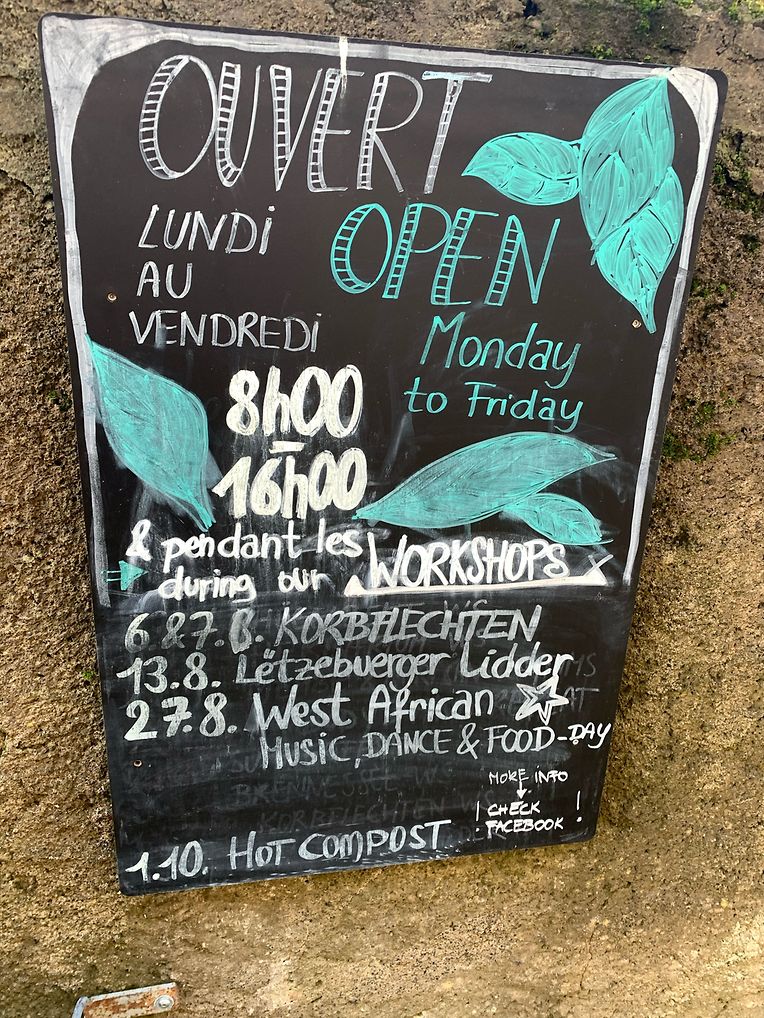 OUVERT
LUNDI
AU
VENDREDI
OPEN
Monday
to Friday
8h00
-
16h00
& pendant les
during our
WORKSHOPS
6.&7.8. KORBFLECHTEN
13.8. Lëtzebuerger Lidder
27.8. West African
MUSIC, DANCE & FOOD-DAY
MORE INFO
! CHECK !
FACEBOOK
1.10. HOT COMPOST